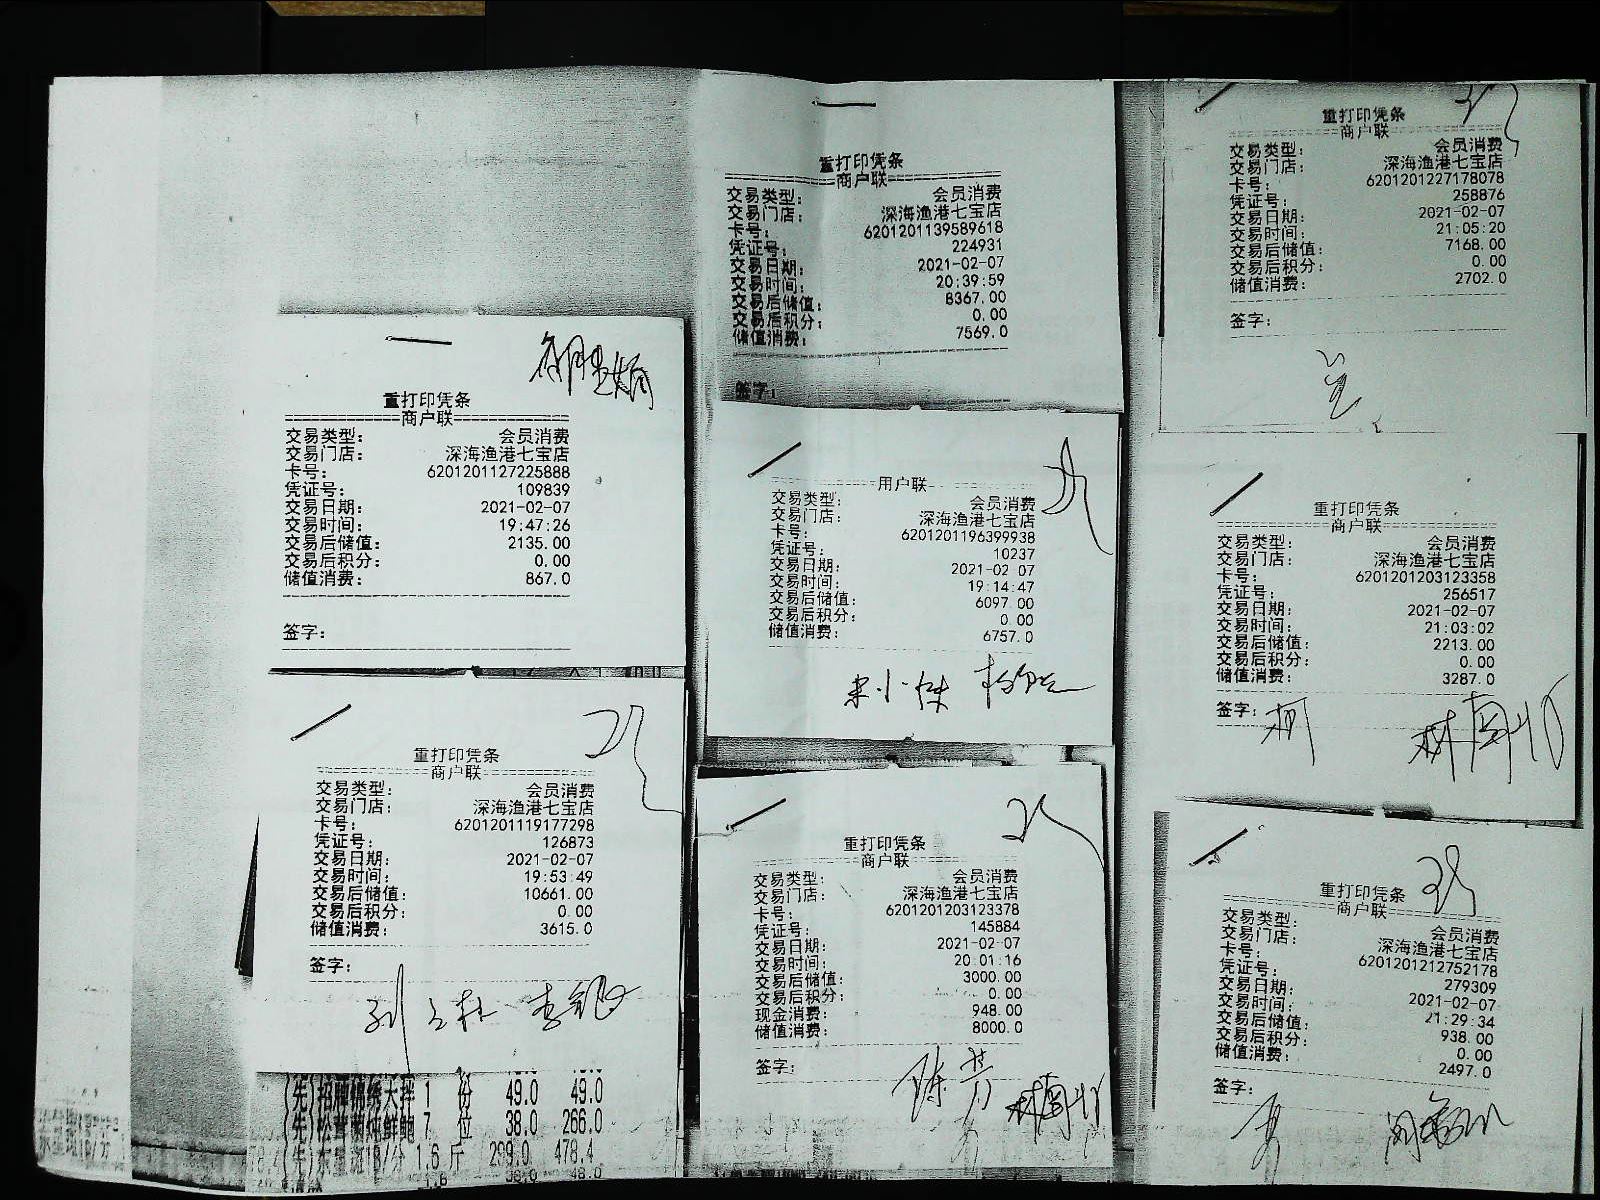 重打印凭条
商户联
交易类型: 会员消费
交易门店: 深海渔港七宝店
卡号: 6201201127225888
凭证号: 109839
交易日期: 2021-02-07
交易时间: 19:47:26
交易后储值: 2135.00
交易后积分: 0.00
储值消费: 867.0
签字:
重打印凭条
商户联
交易类型: 会员消费
交易门店: 深海渔港七宝店
卡号: 6201201119177298
凭证号: 126873
交易日期: 2021-02-07
交易时间: 19:53:49
交易后储值: 10661.00
交易后积分: 0.00
储值消费: 3615.0
签字:
1 份 49.0 49.0
7 位 38.0 266.0
1.6 斤 299.0 478.4
重打印凭条
商户联
交易类型: 会员消费
交易门店: 深海渔港七宝店
卡号: 6201201139589618
凭证号: 224931
交易日期: 2021-02-07
交易时间: 20:39:59
交易后储值: 8367.00
交易后积分: 0.00
储值消费: 7569.0
签字:
用户联
交易类型: 会员消费
交易门店: 深海渔港七宝店
卡号: 6201201196399938
凭证号: 10237
交易日期: 2021-02-07
交易时间: 19:14:47
交易后储值: 6097.00
交易后积分: 0.00
储值消费: 6757.0
重打印凭条
商户联
交易类型: 会员消费
交易门店: 深海渔港七宝店
卡号: 6201201203123378
凭证号: 145884
交易日期: 2021-02-07
交易时间: 20:01:16
交易后储值: 3000.00
交易后积分: 0.00
现金消费: 948.00
储值消费: 8000.0
签字:
陈芳
重打印凭条
商户联
交易类型: 会员消费
交易门店: 深海渔港七宝店
卡号: 6201201227178078
凭证号: 258876
交易日期: 2021-02-07
交易时间: 21:05:20
交易后储值: 7168.00
交易后积分: 0.00
储值消费: 2702.0
签字:
重打印凭条
商户联
交易类型: 会员消费
交易门店: 深海渔港七宝店
卡号: 6201201203123358
凭证号: 256517
交易日期: 2021-02-07
交易时间: 21:03:02
交易后储值: 2213.00
交易后积分: 0.00
储值消费: 3287.0
签字:
重打印凭条
商户联
交易类型: 会员消费
交易门店: 深海渔港七宝店
卡号: 6201201212752178
凭证号: 279309
交易日期: 2021-02-07
交易时间: 21:29:34
交易后储值: 938.00
交易后积分: 0.00
储值消费: 2497.0
签字: